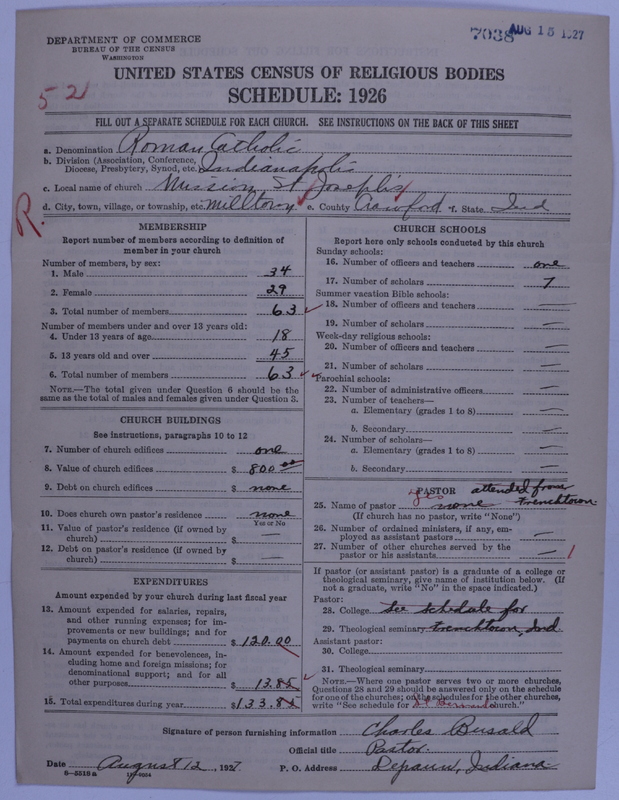 DEPARTMENT OF COMMERCE
BUREAU OF THE CENSUS
WASHINGTON
7038 AUG 15 1927
UNITED STATES CENSUS OF RELIGIOUS BODIES
SCHEDULE: 1926
52
FILL OUT A SEPARATE SCHEDULE FOR EACH CHURCH. SEE INSTRUCTIONS ON THE BACK OF THIS SHEET
a. Denomination Roman Catholic
b. Division (Association, Conference, Diocese, Presbytery, Synod, etc. Indianapolis
c. Local name of church Mission St Joseph's
d. City, town, village, or township, etc. Milltown e. County Crawford f. State Ind
R.
MEMBERSHIP
Report number of members according to definition of
member in your church
Number of members, by sex:
1. Male 34
2. Female 29
3. Total number of members 63
Number of members under and over 13 years old:
4. Under 13 years of age 18
5. 13 years old and over 45
6. Total number of members 63
NOTE.—The total given under Question 6 should be the
same as the total of males and females given under Question 3.
CHURCH BUILDINGS
See instructions, paragraphs 10 to 12
7. Number of church edifices one
8. Value of church edifices $ 800.00
9. Debt on church edifices $ none
10. Does church own pastor's residence none
Yes or No
11. Value of pastor's residence (if owned by
church) $ —
12. Debt on pastor's residence (if owned by
church) $ —
EXPENDITURES
Amount expended by your church during last fiscal year
13. Amount expended for salaries, repairs,
and other running expenses; for im-
provements or new buildings; and for
payments on church debt $ 120.00
14. Amount expended for benevolences, in-
cluding home and foreign missions; for
denominational support; and for all
other purposes $ 13.85
15. Total expenditures during year $ 133.85
CHURCH SCHOOLS
Report here only schools conducted by this church
Sunday schools:
16. Number of officers and teachers one
17. Number of scholars 7
Summer vacation Bible schools:
18. Number of officers and teachers —
19. Number of scholars —
Week-day religious schools:
20. Number of officers and teachers —
21. Number of scholars —
Parochial schools:
22. Number of administrative officers —
23. Number of teachers—
a. Elementary (grades 1 to 8) —
b. Secondary —
24. Number of scholars—
a. Elementary (grades 1 to 8) —
b. Secondary —
PASTOR attended from
yes
25. Name of pastor none Frenchtown.
(If church has no pastor, write "None")
26. Number of ordained ministers, if any, em-
ployed as assistant pastors —
27. Number of other churches served by the
pastor or his assistants — 1
If pastor (or assistant pastor) is a graduate of a college or
theological seminary, give name of institution below. (If
not a graduate, write "No" in the space indicated.)
Pastor:
28. College See schedule for
29. Theological seminary Frenchtown, Ind
Assistant pastor:
30. College
31. Theological seminary
NOTE.—Where one pastor serves two or more churches,
Questions 28 and 29 should be answered only on the schedule
for one of the churches; on the schedules for the other churches,
write "See schedule for St Bernard church."
Signature of person furnishing information Charles Busald
Official title Pastor.
Date August 12, 1927 P. O. Address Depauw, Indiana.
8-5518a